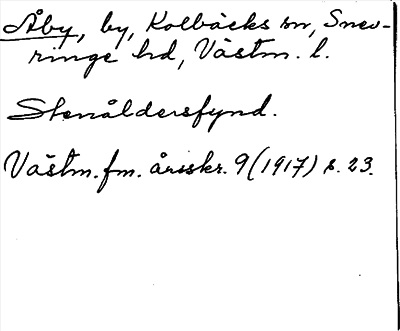 Åby, by, Kolbäcks sn, Snev-
ringe hd, Västm. l.
Stenåldersfynd.
Västm. fm. årsskr. 9 (1917) s. 23.